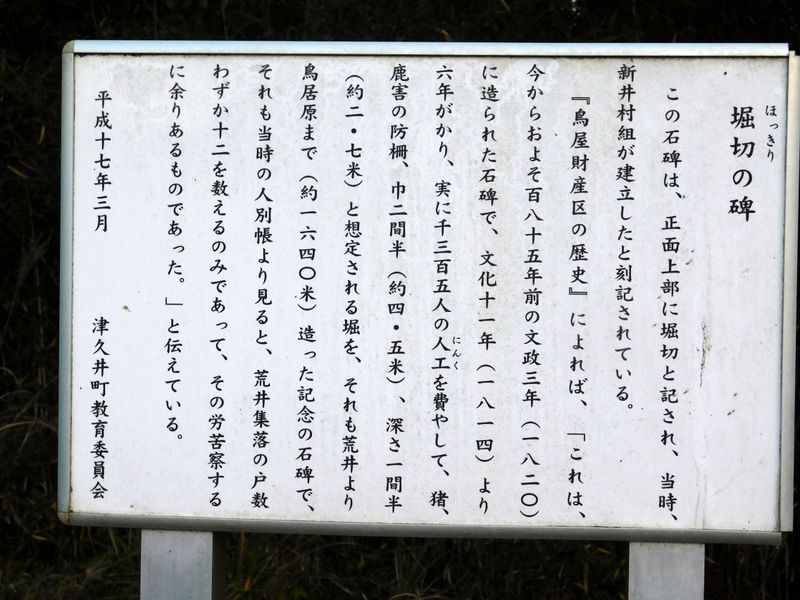 ほっきり
堀切の碑
この石碑は、正面上部に堀切と記され、当時、
新井村組が建立したと刻記されている。
『鳥屋財産区の歴史』によれば、「これは、
今からおよそ百八十五年前の文政三年（一八二〇）
に造られた石碑で、文化十一年（一八一四）より
六年がかり、実に千三百五人の人工を費やして、猪、
にんく
鹿害の防柵、巾二間半（約四・五米）、深さ一間半
（約二・七米）と想定される堀を、それも荒井より
鳥居原まで（約一六四〇米）造った記念の石碑で、
それも当時の人別帳より見ると、荒井集落の戸数
わずか十二を数えるのみであって、その労苦察する
に余りあるものであった。」と伝えている。
平成十七年三月
津久井町教育委員会